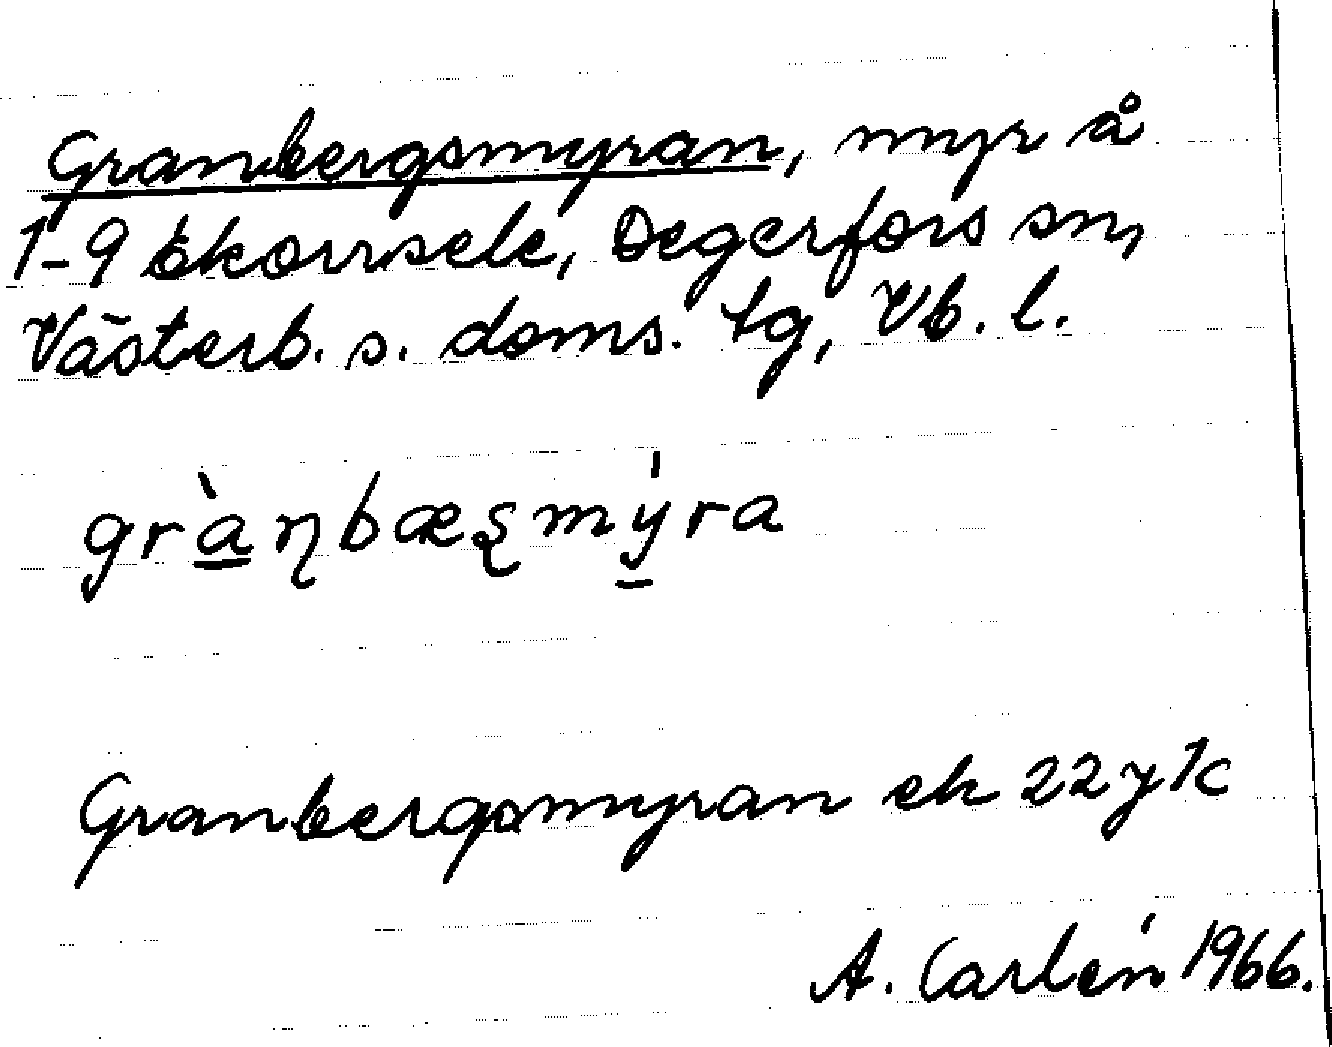 Granbergsmyran, myr å
1-9 Ekorrsele, Degerfors sn,
Västerb. s. doms. tg, Vb. l.
gràꞃbæʂmýra
Granbergsmyran ek 22 y 1c
A. Carlén 1966.